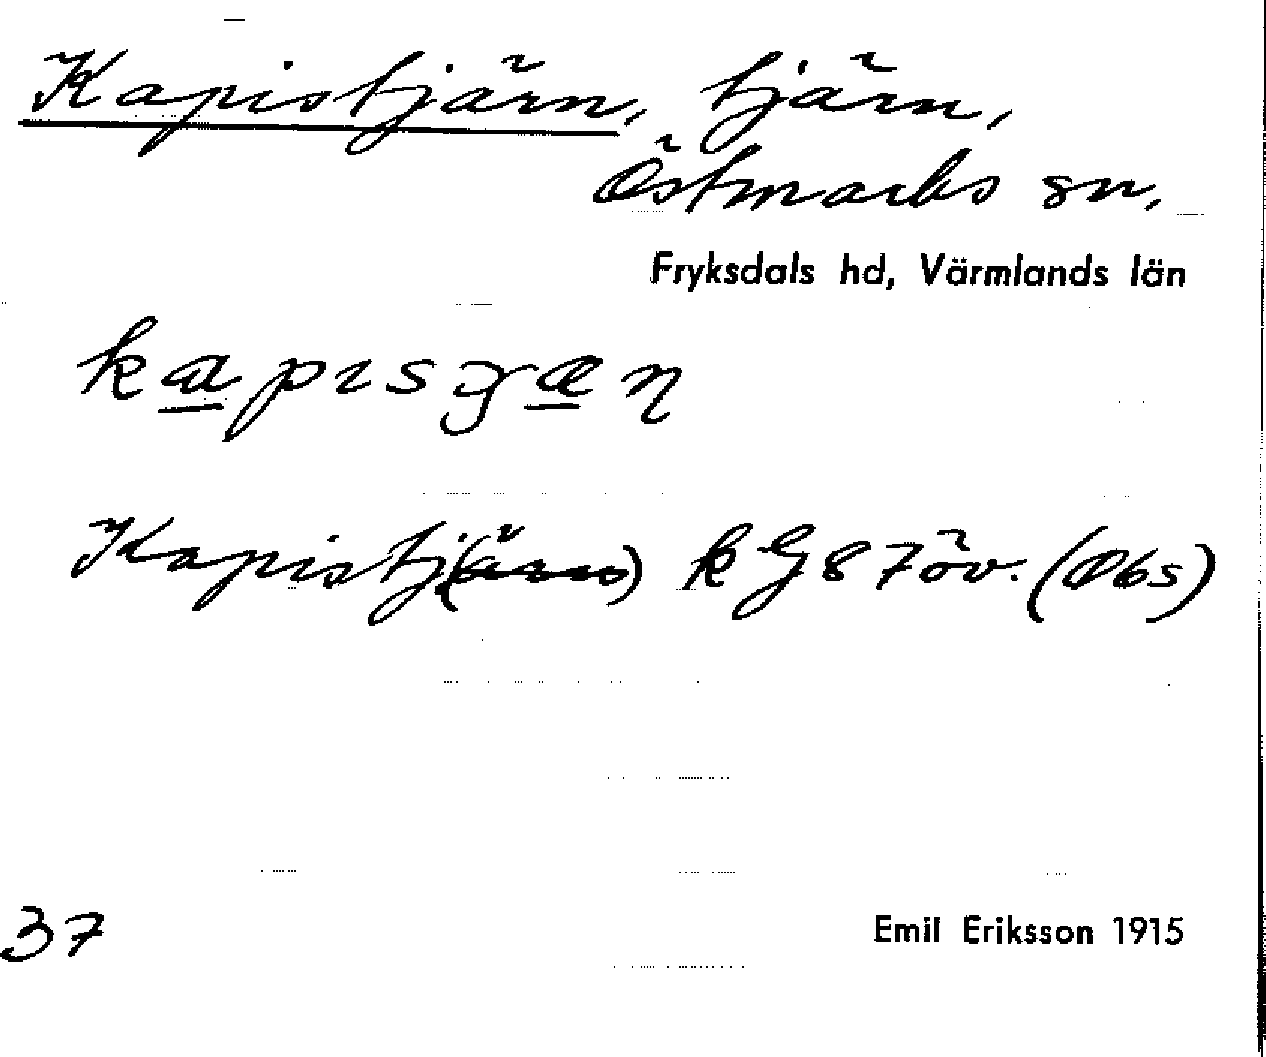 Kapistjärn, tjärn,
Östmarks sn,
Fryksdals hd, Värmlands län
Kapistj(ärn) kG 87 öv. (Obs)
37
Emil Eriksson 1915